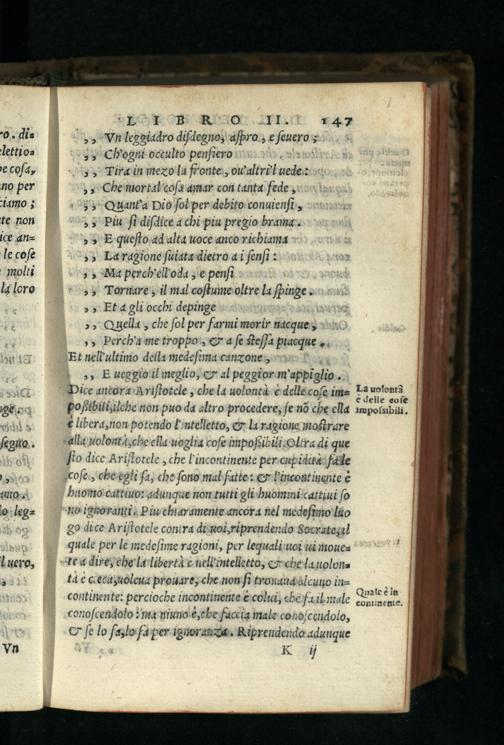 LIBRO II. 147
,, Vn leggiadro disdegno, aspro, e seuero;
,, Ch'ogni occulto pensiero
,, Tira in mezo la fronte, ou'altri'l uede:
,, Che mortal cosa amar con tanta fede,
,, Quant'a Dio sol per debito conuiensi,
,, Piu si disdice a chi piu pregio brama.
,, E questo ad alta uoce anco richiama
,, La ragione suiata dietro a i sensi:
,, Ma perch'ell'oda, e pensi
,, Tornare, il mal costume oltre la spinge.
,, Et a gli occhi depinge
,, Quella, che sol per farmi morir nacque,
,, Perch'a me troppo, & a se stessa piacque.
Et nell'ultimo della medesima canzone,
,, E ueggio il meglio, & al peggior m'appiglio.
Dice ancora Aristotele, che la uolontà è delle cose im=
possibili, ilche non puo da altro procedere, se nõ che ella
è libera, non potendo l'intelletto, & la ragione mostrare
alla uolontà, che ella uoglia cose impossibili. Oltra di que
sto dice Aristotele, che l'incontinente per cupidità fa le
cose, che egli sa, che sono mal fatte: & l'incontinente è
huomo cattiuo: adunque non tutti gli huomini cattiui so
no ignoranti. Piu chiaramente ancora nel medesimo luo
go dice Aristotele contra di uoi, riprendendo Socrate, il
quale per le medesime ragioni, per lequali uoi ui moue=
te a dire, che la libertà è nell'intelletto, & che la uolon=
tà è cieca, uoleua prouare, che non si trouaua alcuno in=
continente: percioche incontinente è colui, che fa il male
conoscendolo: ma niuno è, che faccia male conoscendolo,
& se lo fa, lo fa per ignoranza. Riprendendo adunque
K ij
La uolontà
è delle cose
impossibili.
Quale è in
continente.
ro. di=
elettio=
pe cosa,
no per
ciamo;
te non
ice an=
le cose
molti
la loro
seguo.
amo.
lo leg=
'l uero,
Vn